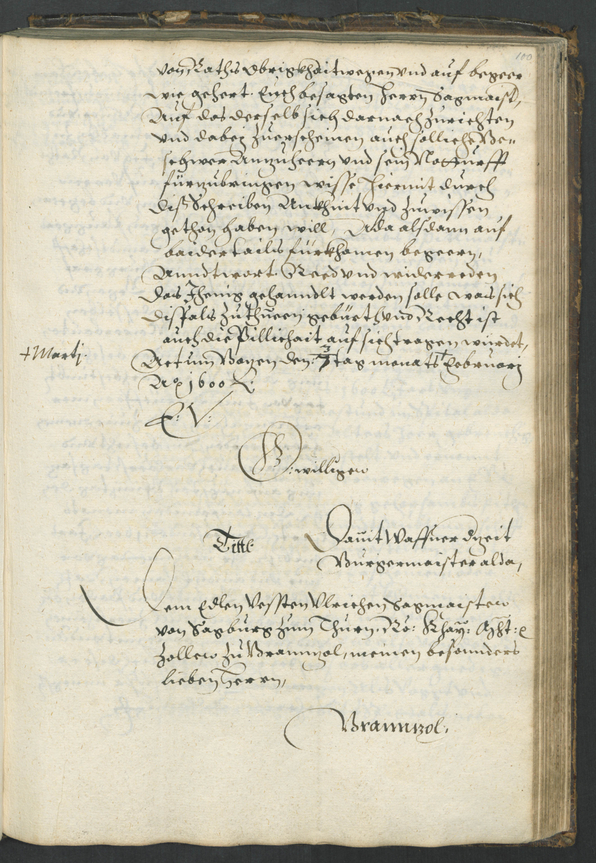 100
von Raths Obrigkhait wegen und auf begeer
wie gehert Euch besagten Herrn Sagmaistr,
Auf das derselb sich darnach zurichten
und dabej zuerscheinen auch solliche Be„
schwer Anzuheern und sein Notturfft
fürzubringen wisse hiermit durch
diß Schreiben Ankhint und zuwissen
gethon haben will, Alda alsdann auf
baidertails fürkhomen begeern,
Anndtwort Reed und widerreden
das Jhenig gehanndlt werden solle was sich
disfals zuthuen gebürt und Recht ist
auch die Billichait auf sich tragen würdet,
+ Martj
Actum Bozen den tag monats Februarj
Ao 1600
E: V:
G: willigen
Title
Dauit Waffner dizeit
Burgermaister alda,
Dem Edlen Vessten Ulrichen Sagmaister
von Sagburg zum Thurn, Rö: Khay: Mt:
Zoller zu Brannzol, meinen besonnders
lieben Herrn,
Brannzol: